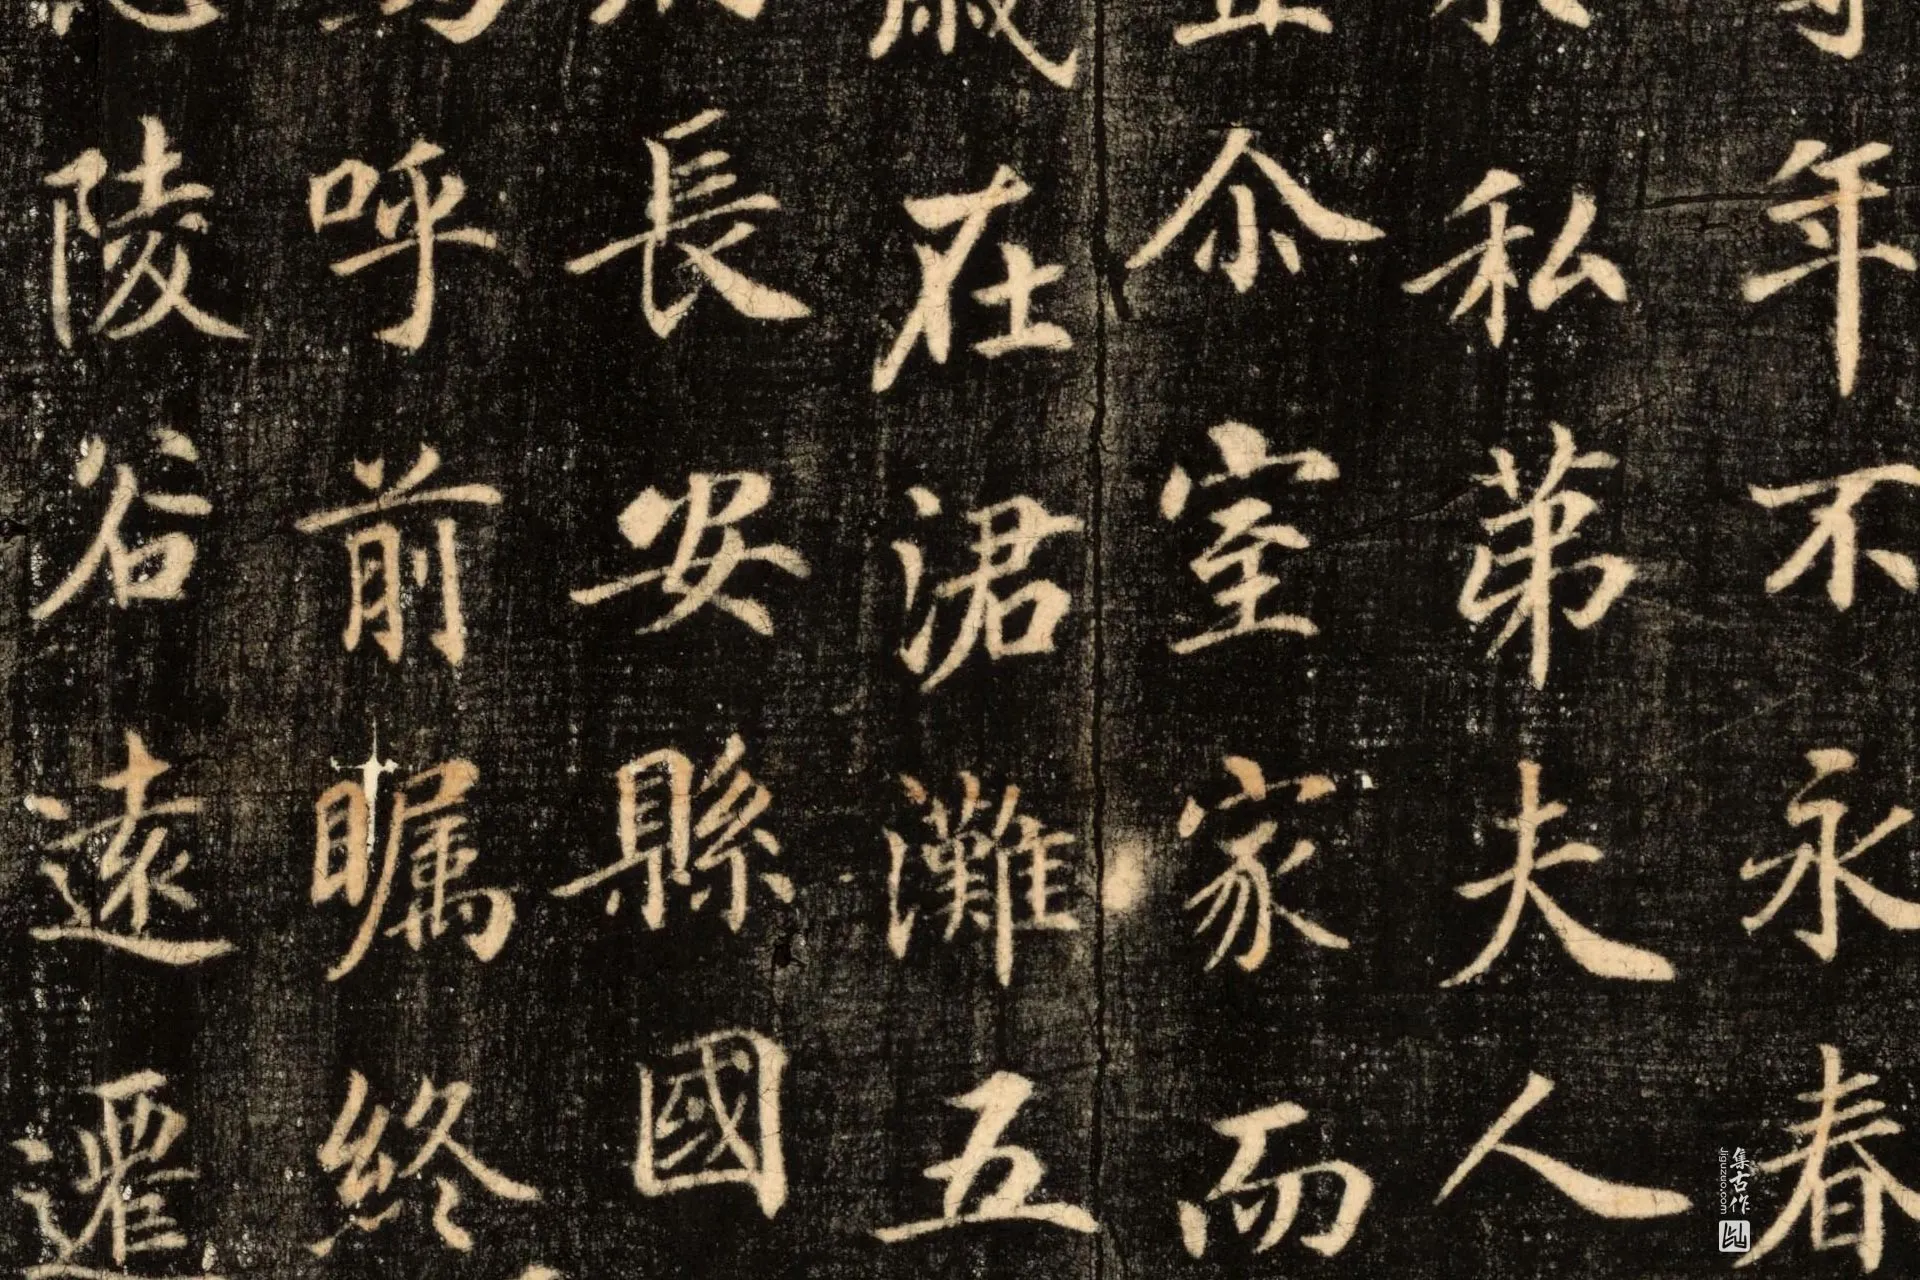 年不永春
私弟夫人
尒室家而
歲在涒灘五
長安縣國
呼前矚終
陵谷遠遷
集古作
jiguzuo.com